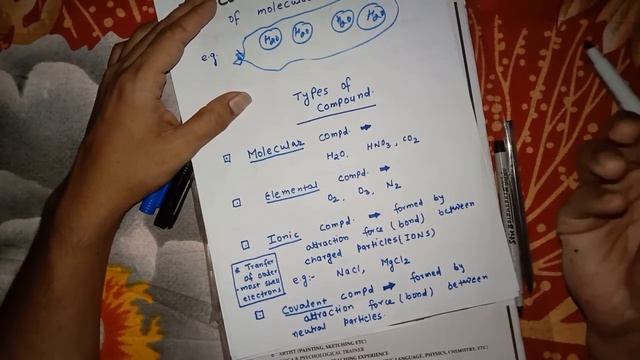 of molecules
e.g.
H2O H2O H2O H2O
Types of
Compound.
Molecular compd. →
H2O, HNO3, CO2
Elemental compd. →
O2, O3, N2
Ionic compd. → formed by
attraction force (bond) between
charged particles (IONS)
e.g:- NaCl, MgCl2
Tranfer
of outer
-most shell
electrons
Covalent compd → formed by
attraction force (bond) between
neutral particles.
ARTIST (PAINTING, SKETCHING ETC)
& PSYCHOLOGICAL TRAINER
TEACHING EXPERIENCE
LANGUAGE, PHYSICS, CHEMISTRY, ETC)